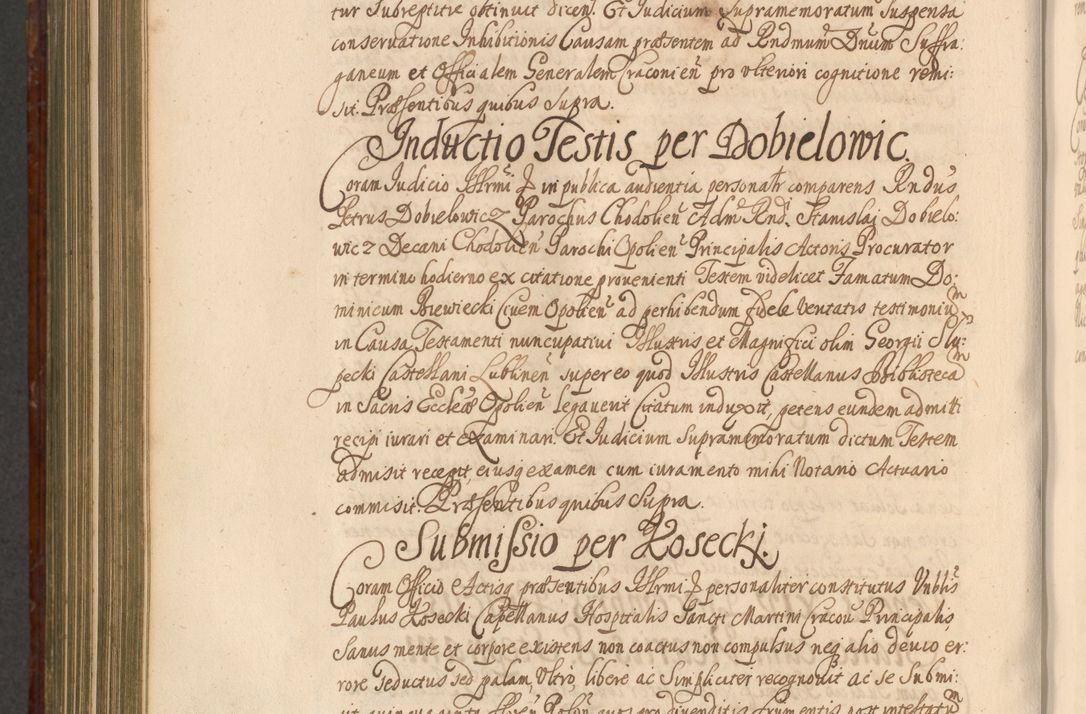 tur Subreptitie obtinuit dicen̄. Et Iudicium Supramemoratum Suspensa
conseruatione Inhibitionis Causam præsentem ad Rndmum Dnum Suffra:
ganeum et Officialem Generalem Craconien̄ pro vlteriori cognitione remi:
sit. Præsentibus quibus Supra.
Inductio Testis per Dobielowic.
Coram Iudicio Illrmi & in publica audientia personalr comparens Rndus
Petrus Dobielowicz Parochus Chodolien̄ Adm Rnd. Stanislaj Dobielo:
wicz Decani Chodolien̄ Parochi Opolien̄ Principalis Actoris Procurator
in termino hodierno ex citatione prouenienti Testem videlicet Famatum Do:
minicum Biewiecki Ciuem Opolien̄ ad perhibendum fidele Veritatis testimoniu̅m
in Causa Testamenti nuncupatiui Illustris et Magnifici olim Georgii Slu:
pecki Castellani Lublinen̄ super eo quod Illustris Castellanus Bibliotecam
in Sacris Eccleæ Opolien̄ legauerit Citatum induxit, petens eundem admitti
recipi iurari et examinari. Et Iudicium Supramemoratum dictum Testem
admisit recepit, eiusq examen cum iuramento mihi Notario Actuario
commisit. Præsentibus quibus Supra.
Submissio per Kosecki.
Coram Officio Actisq præsentibus Illrmi & personaliter constitutus Vnblis
Paulus Kosecki Capellanus Hospitalis Sancti Martini Cracou Principalis
Sanus mente et corpore existens non coactus non compulsus neq alio deuio er:
rore seductus sed palam, Vltro, libere ac Simpliciter recognouit ac se Submi:
sit quinquaginta Polon̄ quos pro diuenditis frumentis post intestatum